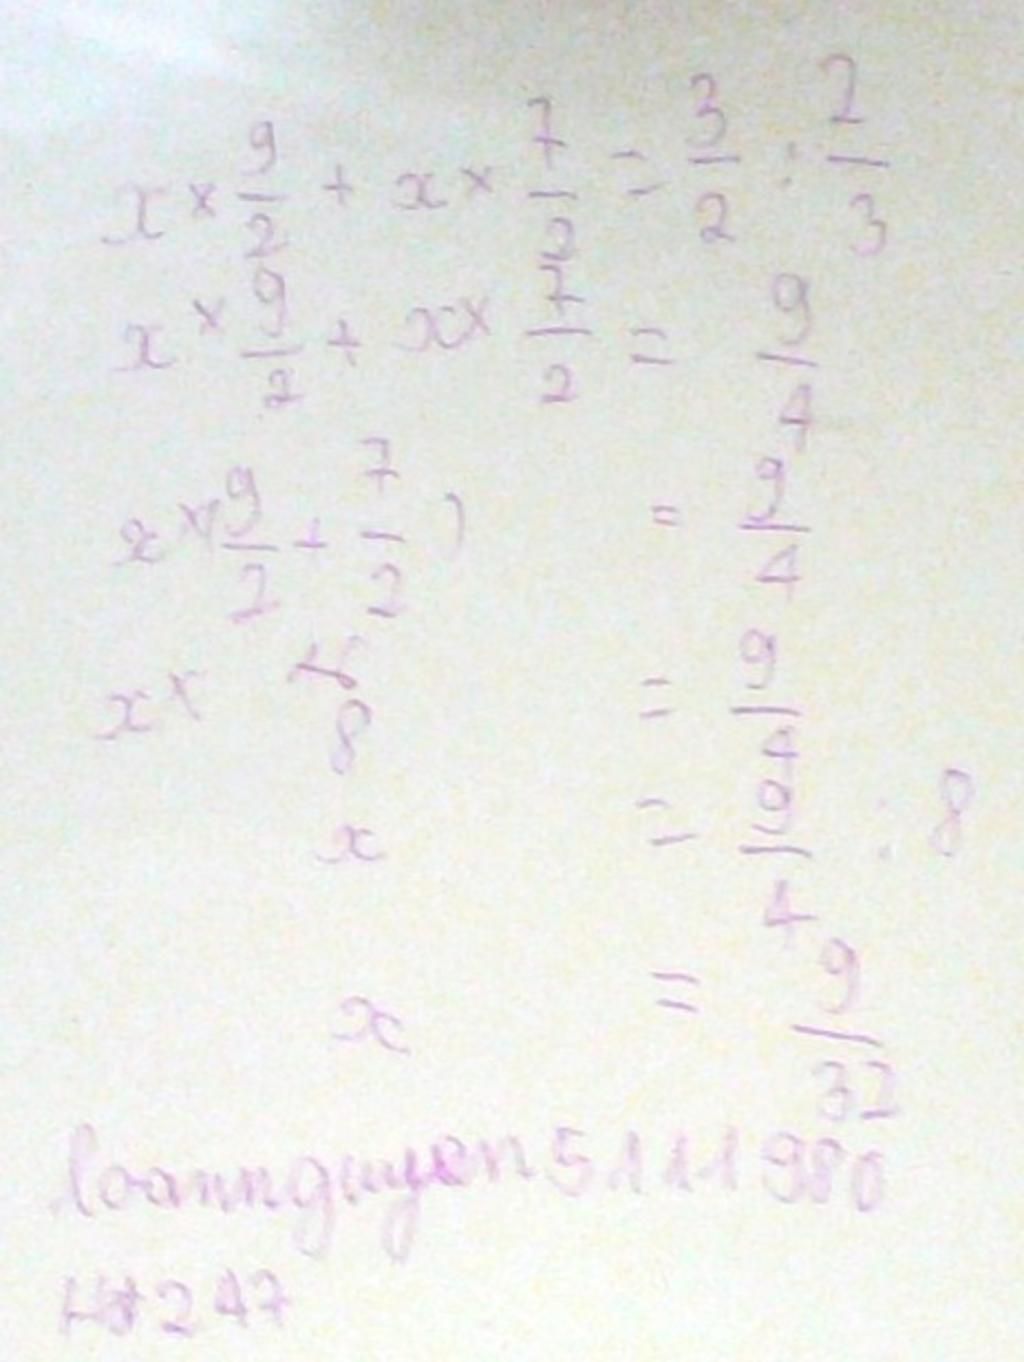 x × 9/2 + x × 7/2 = 3/2 : 2/3
x × 9/2 + x × 7/2 = 9/4
x × ( 9/2 + 7/2 ) = 9/4
x × 8 = 9/4
x = 9/4 : 8
x = 9/32
loannguyen5111980
H#247